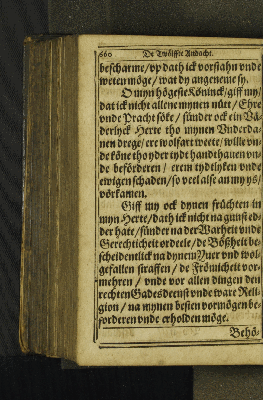 660 De Twölffte Andacht.
bescharme/ vp dath ick vorstahn vnde
weten möge/ wat dy angeneme sy.
O myn högeste Köninck/ giff my/
dat ick nicht allene mynen nütt/ Ehre
vnde Pracht söke/ sünder ock ein Vä-
derlyck Herte tho mynen Vnderda-
nen drege/ ere wolfart weete/ wille vn-
de köne tho yder tydt handthauen vn-
de beförderen/ erem tydtlyken vnde
ewigen schaden/ so veel alse an my ys/
vörkamen.
Giff my ock dynen früchten in
myn Herte/ dath ick nicht na gunst ed-
der hate/ sünder na der Warheit vnde
Gerechticheit ordeele/ de Bößheit be-
scheidentlick na dynem Yuer vnd wol-
gefallen straffen/ de Frömicheit vor-
mehren/ vnde vor allen dingen den
rechten Gades deenst vnde ware Reli-
gion/ na mynen besten vormögen be-
forderen vnde erholden möge.
Behö-